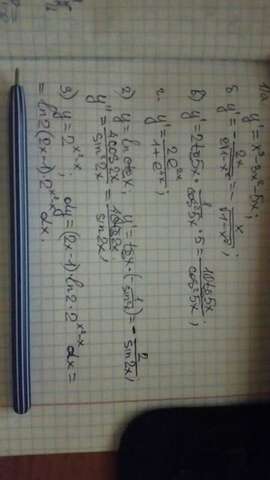 y' = x² - 3x² - 5x;
б y' = - 2x / 2√1-x² = - x / √1-x²
в) y' = 2tg5x · 1/cos²5x · 5 = 10tg5x / cos²5x;
г. y' = 2e²ˣ / 1+e⁴ˣ;
2) y = ln ctgx. y' = tgx · (- 1/sin²x) = - 2/sin2x;
y'' = 4cos2x / sin²2x =
3) y = 2^x²-x; dy = (2x-1) · ln2 · 2^x²-x dx =
= ln2(2x-1) · 2^x²-x dx.